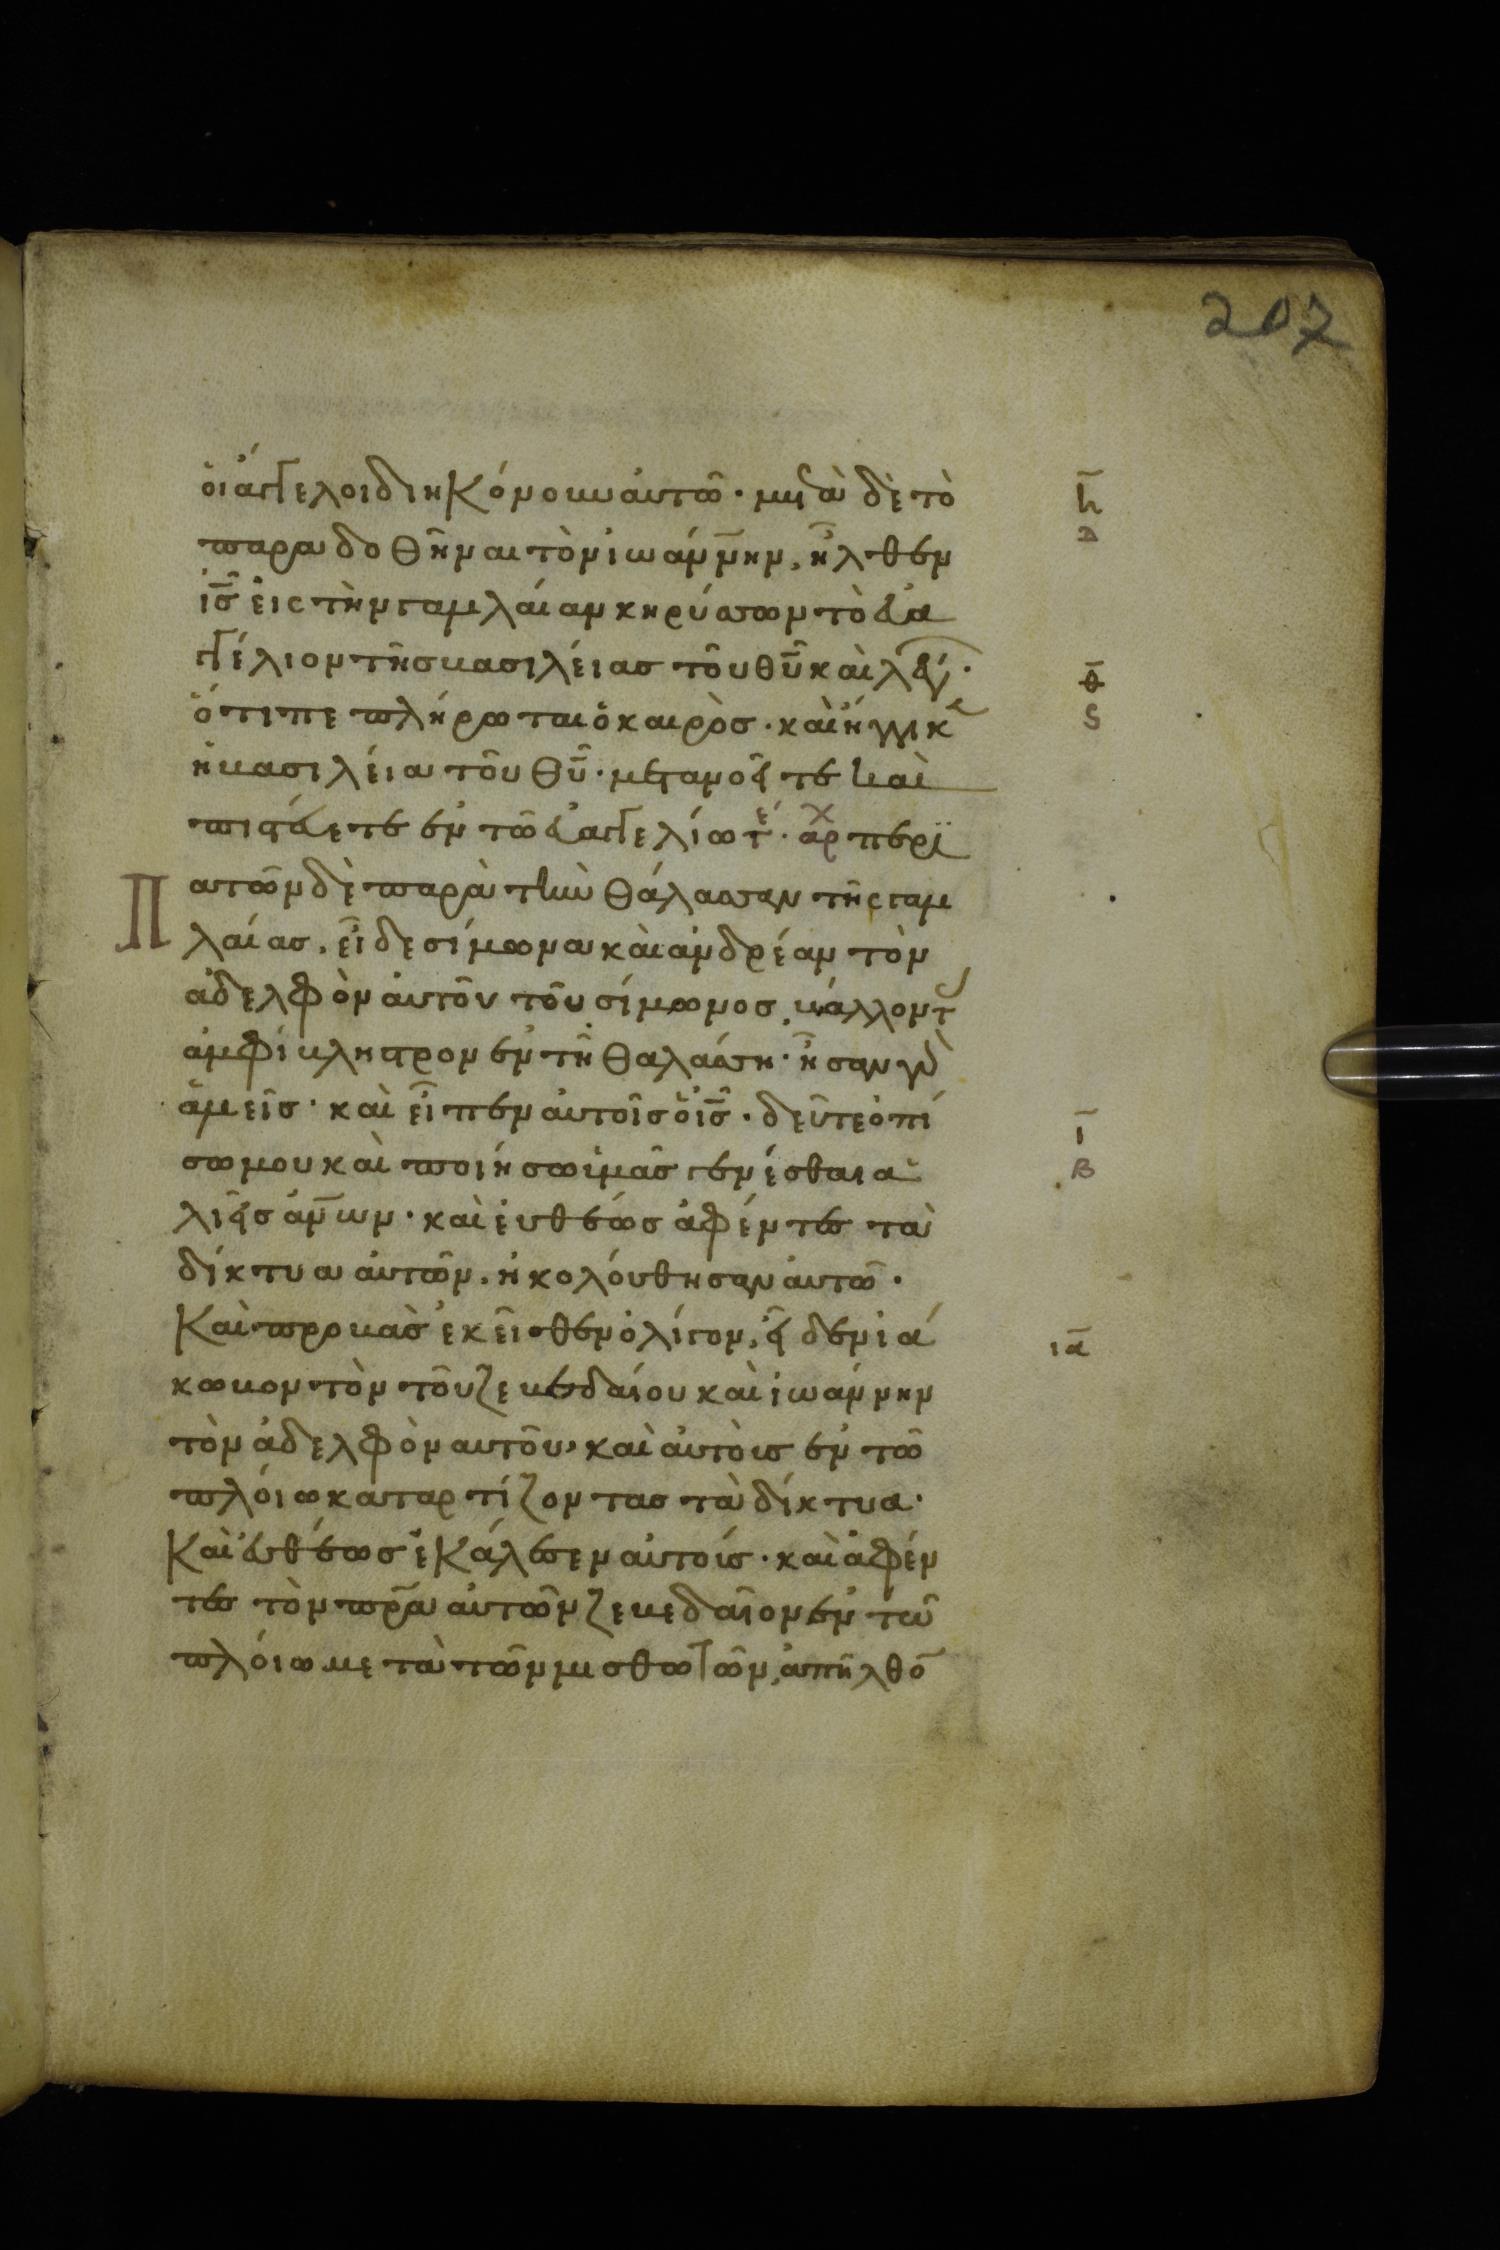 207
οἱ ἄγγελοι διηκόνουν αὐτῶ· μετὰ δὲ τὸ
παραδοθῆναι τὸν ἰωάννην, ἦλθεν
ἰς̅ εἰς τὴν γαλιλαίαν κηρύσσων τὸ εὐα
γγέλιον τῆς βασιλείας τοῦ θῦ καὶ λέγ·
ὅτι πεπλήρωται ὁ καιρὸς· καὶ ἤγγικε
ἡ βασιλεία τοῦ θῦ· μετανοεῖτε καὶ
πιστεύετε ἐν τῶ εὐαγγελίω τε· αρχ περι
πατῶν δὲ παρὰ τὴν θάλασσαν τῆς γαλι
λαίας, εἶδε σίμωνα καὶ ἀνδρέαν τὸν
ἀδελφὸν αὐτοῦ τοῦ σίμωνος, βάλλοντ
ἀμφίβληστρον ἐν τῆ θαλάσση· ἦσαν γὰρ
ἁλιεῖς· καὶ εἶπεν αὐτοῖς ὁ ἰς̅· δεῦτε ὀπί
σω μου καὶ ποιήσω ὑμᾶς γενέσθαι ἁ
λιεῖς ἀνων· καὶ εὐθέως ἀφέντες τὰ
δίκτυα αὐτῶν, ἠκολούθησαν αὐτῶ·
Καὶ προβὰς ἐκεῖθεν ὀλίγον, εἶδεν ἰά
κωβον τὸν τοῦ ζεβεδαίου καὶ ἰωάννην
τὸν ἀδελφὸν αὐτοῦ, καὶ αὐτοὺς ἐν τῶ
πλοίω καταρτίζοντας τὰ δίκτυα·
Καὶ εὐθέως ἐκάλεσεν αὐτοὺς· καὶ ἀφέν
τες τὸν πρα αὐτῶν ζεβεδαῖον ἐν τῶ
πλοίω μετὰ τῶν μισθωτῶν, ἀπῆλθο
η̅
θ̅
ς
ι̅
β
ια̅